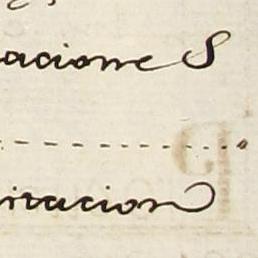 acione S
itacion